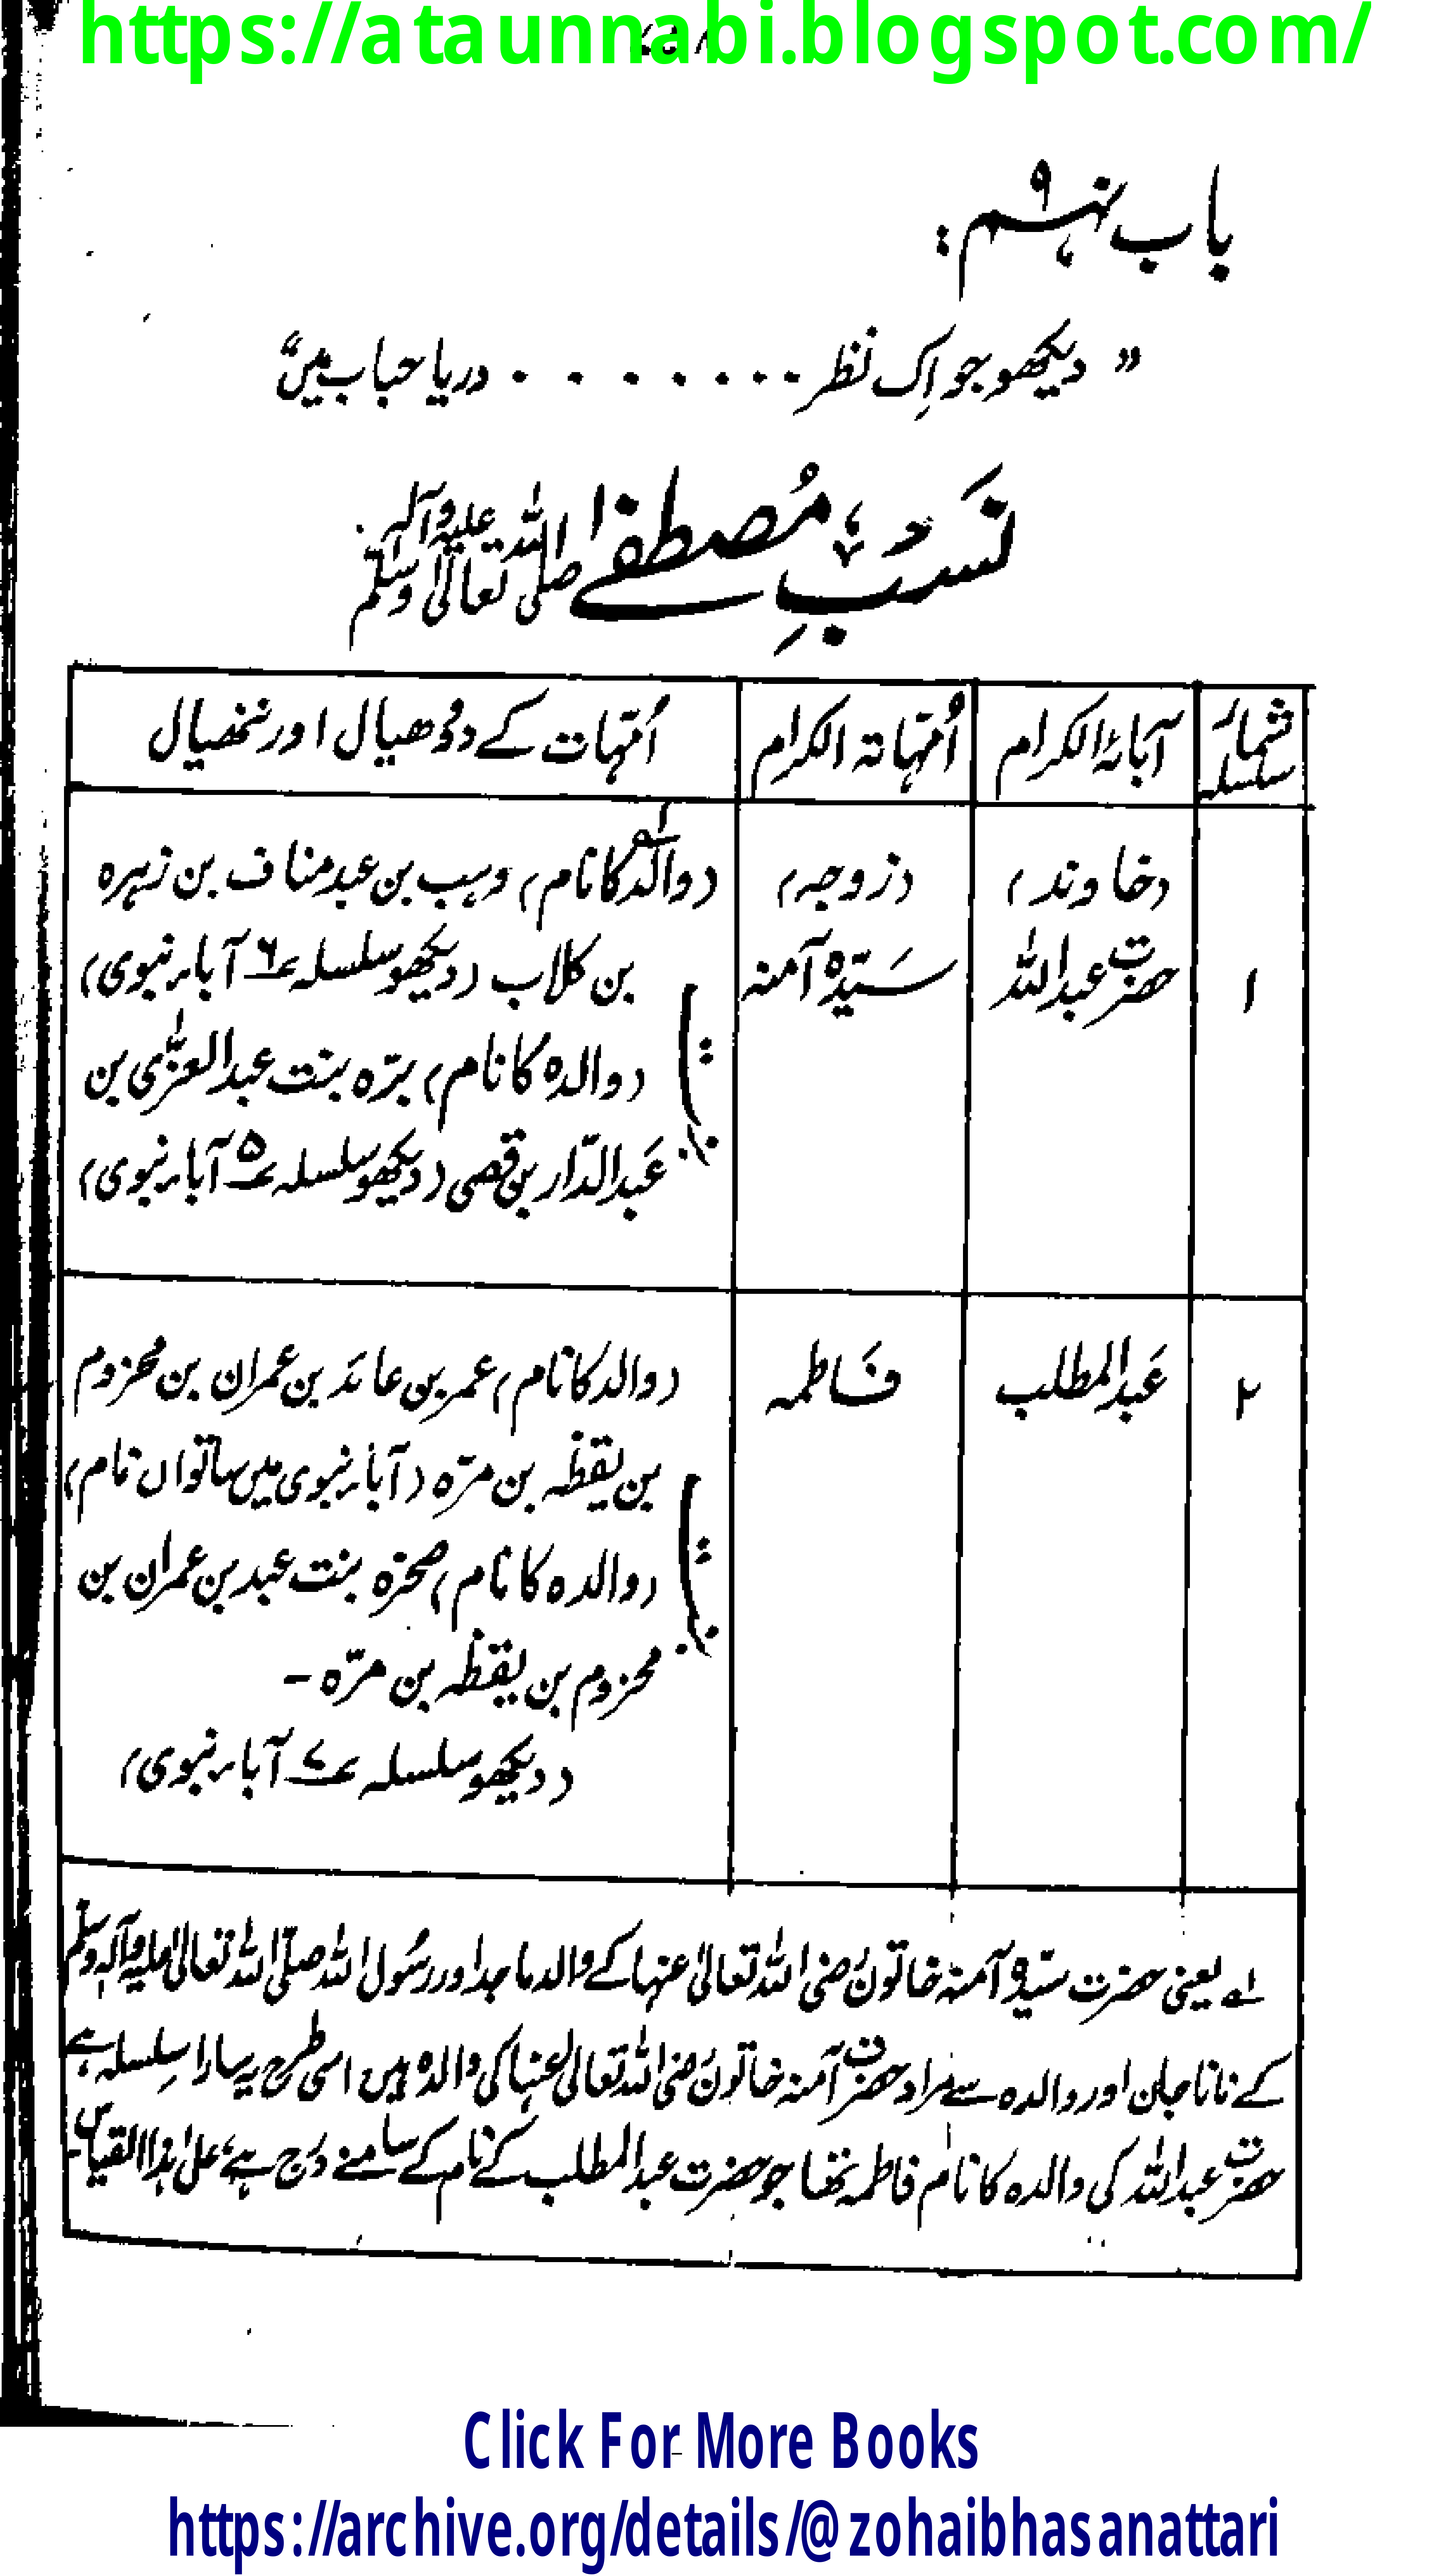 https://ataunnabi.blogspot.com/
باب نہم ۹ :
” دیکھو جو اِک نظر ........ دریا حباب میں “
نَسَبِ مُصطفےٰ صلی اللہ تعالیٰ علیہ وآلہ وسلم
شمار سلسلہ
آبائہ الکرام
اُمّہاتہ الکرام
اُمّہات کے ددھیال اور ننھیال
۱
(خاوند)
حضرت عبداللہ
(زوجہ)
سَیّدہ آمنہ
(والدؔ کا نام) وہب بن عبد مناف بن زہرہ
بن کلاب (دیکھو سلسلہ ؁۶ آباءِ نبوی)
(والدہ کا نام) برّہ بنت عبدالعزّٰی بن
عَبدالدّار بن قصی (دیکھو سلسلہ ؁۵ آباءِ نبوی)
۲
عَبدالمطلب
فَاطمہ
(والد کا نام) عمر بن عائذ بن عمران بن مخزوم
بن یقظہ بن مرّہ (آباءِ نبوی میں ساتواں نام)
(والدہ کا نام) صخرہ بنت عبد بن عمران بن
مخزوم بن یقظہ بن مرّہ -
(دیکھو سلسلہ ؁۷ آباءِ نبوی)
؁۱ یعنی حضرت سیّدہ آمنہ خاتون رَضی اللہ تعالیٰ عنہا کے والد ماجد اور رسُول اللہ صلّی اللہ تعالیٰ علیہ وآلہٖ وسلّم
کے نانا جان اور والدہ سے مراد حضرت آمنہ خاتون رَضی اللہ تعالیٰ عنہا کی والدہ ہیں اسی طرح یہ سارا سِلسلہ ہے
حضرت عبداللہ کی والدہ کا نام فاطمہ تھا جو حضرت عبدالمطلب کے نام کے سامنے دَرج ہے، علیٰ ہٰذا القیاس۔
Click For More Books
https://archive.org/details/@zohaibhasanattari